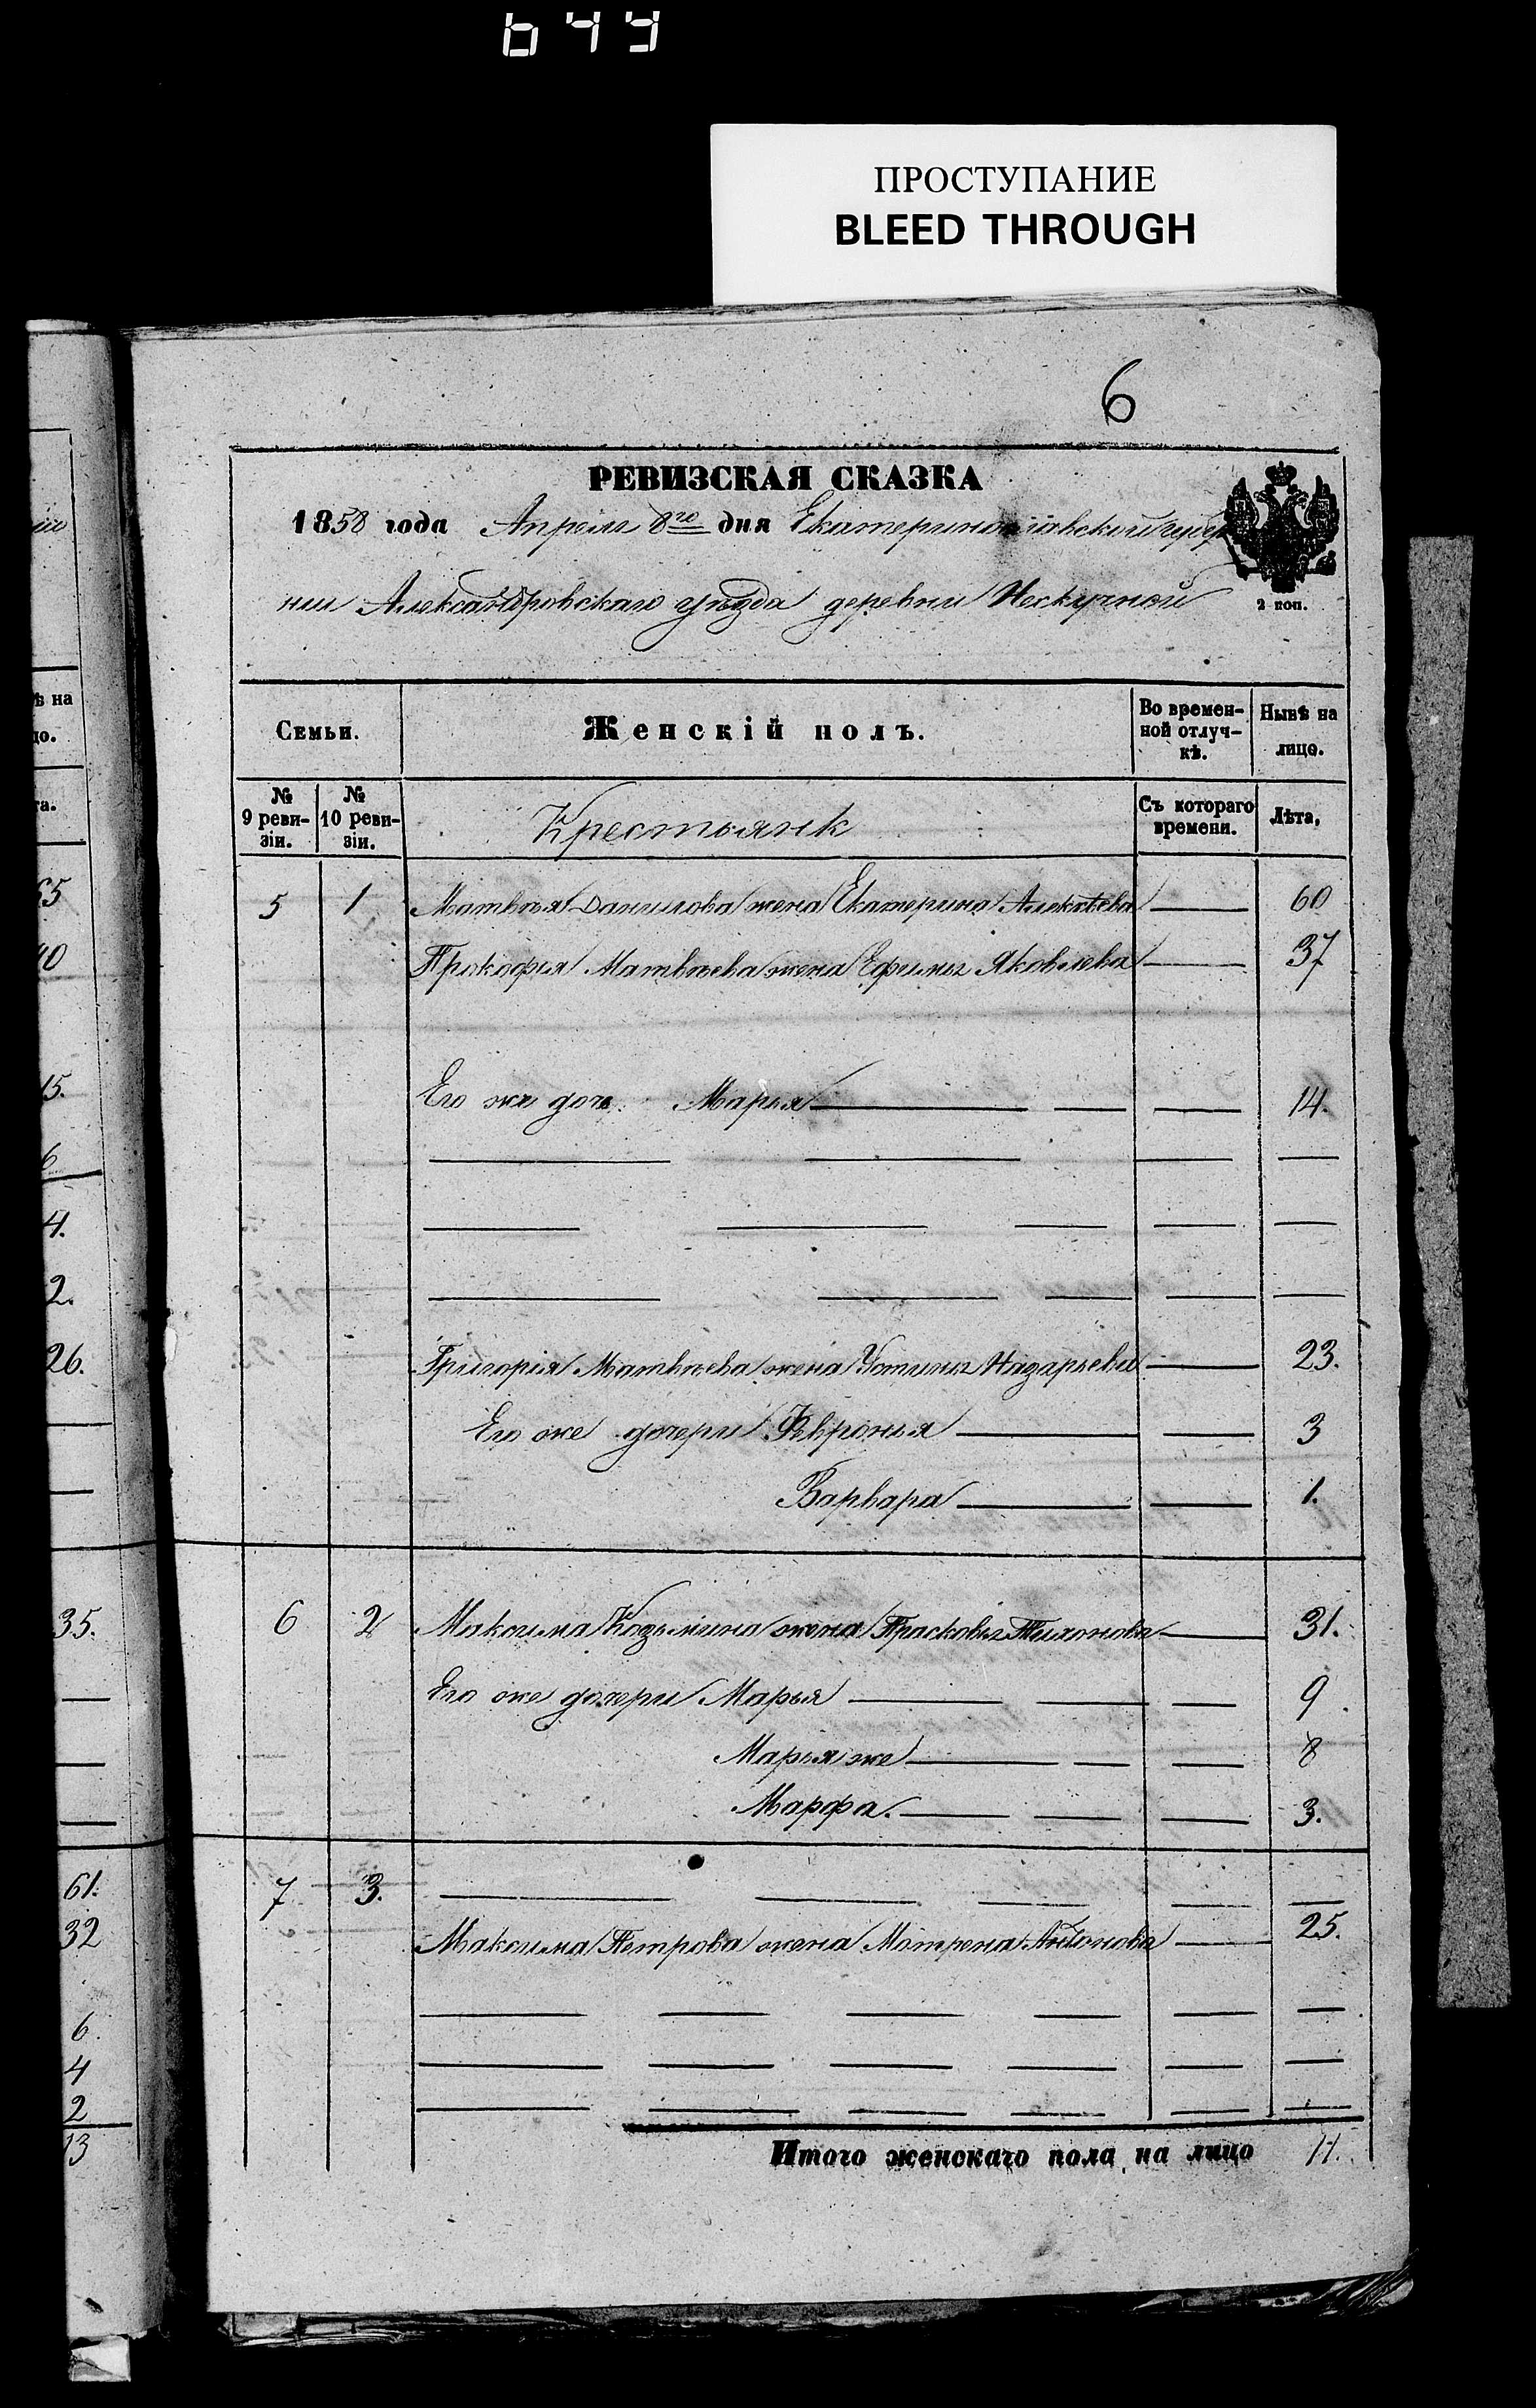 649
ПРОСТУПАНИЕ
BLEED THROUGH
6
РЕВИЗСКАЯ СКАЗКА
1858 года Апреля 8го дня Екатеринославской губер
нии Александровскаго уѣзда деревни Нескучной
2 коп.
Семьи. Женскій полъ. Во времен-ной отлуч-кѣ. Нынѣ на лицо.
№ 9 реви-зіи. № 10 реви-зіи. Крестьянк Съ котораго времени. Лѣта,
5 1 Матвѣя Данилова жена Екатерина Алексѣева 60
Прокофія Матвѣева жена Ефимья Яковлева 37
Его же дочь Марья 14.
Григорія Матвѣева жена Устинья Назарьева 23.
Его же дочери Февронья 3
Варвара 1.
6 2 Максима Козьмина жена Прасковья Тихонова 31.
Его же дочери Марья 9
Марья же 8
Марфа. 3.
7 3.
Максима Петрова жена Матрена Антонова 25.
Итого женскаго пола на лицо 11.
ѣ на
цо.
та.
65
40
15.
6
4.
2.
26.
35.
61.
32
6.
4
2
13